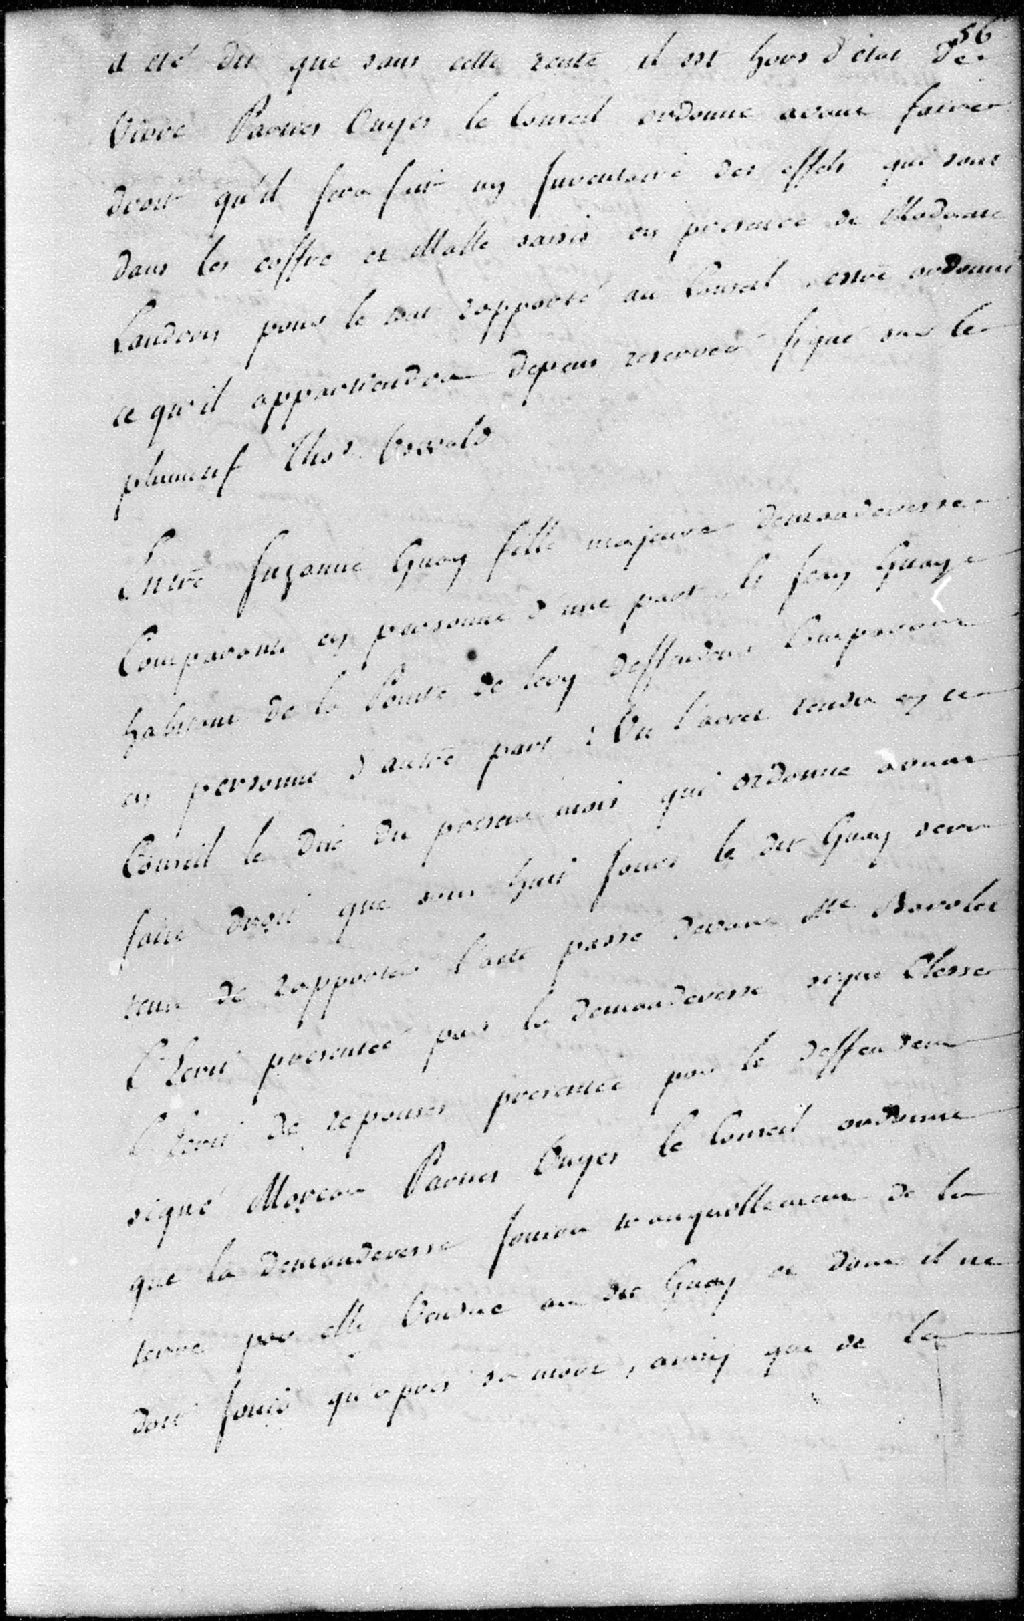 56
a eté dit que sans cette rente il est hors d'état de
vivre Parties ouyes le Conseil ordonne avant faire
droit qu'il sera fait un Inventaire des effets qui sont
dans les coffre et Malle saisis en presence de Madame
Landron pour le tout rapporté au Conseil estre ordonné
ce qu'il appartiendra depens reservés signé sur le
plumitif Thos
Entre Suzanne Guay fille majeure demanderesse
Comparante en personne d'une part, le Guay
habitant de la Pointe de Levy deffendeur Comparant
en personne d'autre part : Vu l'arret rendu en ce
Conseil le dix du present mois qui ordonne avant
faire droit que sous huit jours le dit Guay sera
tenu de rapporter l'acte passé devant Me Barolet
L'Ecrit presenté par la demanderesse signé
L'Ecrit de reponses presenté par le deffendeur
signé Moreau Parties ouyes le Conseil ordonne
que la demanderesse jouira tranquillement de la
terre par elle vendue au dit Guay et dont il ne
doit jouir qu'apres sa mort, ainsy que de la